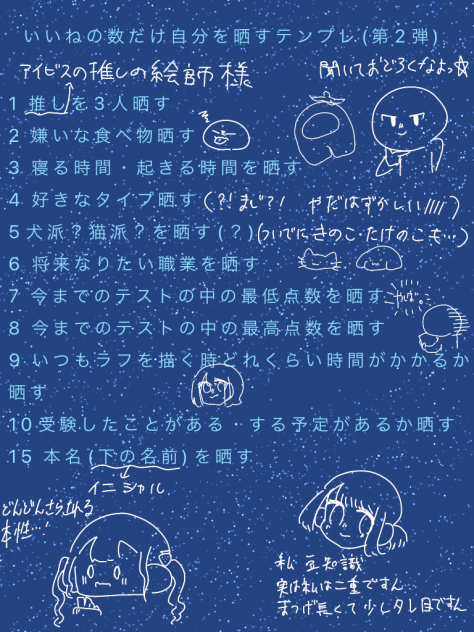 いいねの数だけ自分を晒すテンプレ(第2弾)
アイビスの推しの絵師様
聞いておどろくなよっ☆
1 推しを3人晒す
2 嫌いな食べ物晒す
3 寝る時間・起きる時間を晒す
4 好きなタイプ晒す(?!まじ?! やだはずかしい////)
5 犬派?猫派?を晒す(?)(ついでにきのこたけのこも…)
6 将来なりたい職業を晒す
7 今までのテストの中の最低点数を晒す やば。
8 今までのテストの中の最高点数を晒す
9 いつもラフを描く時どれくらい時間がかかるか
晒ず
10受験したことがある・する予定があるか晒す
15 本名(下の名前)を晒す
イニシャル
どんどんさらされる
本性…!
私 豆知識
実は私は二重ですん
まつげ長くて少しタレ目ですん